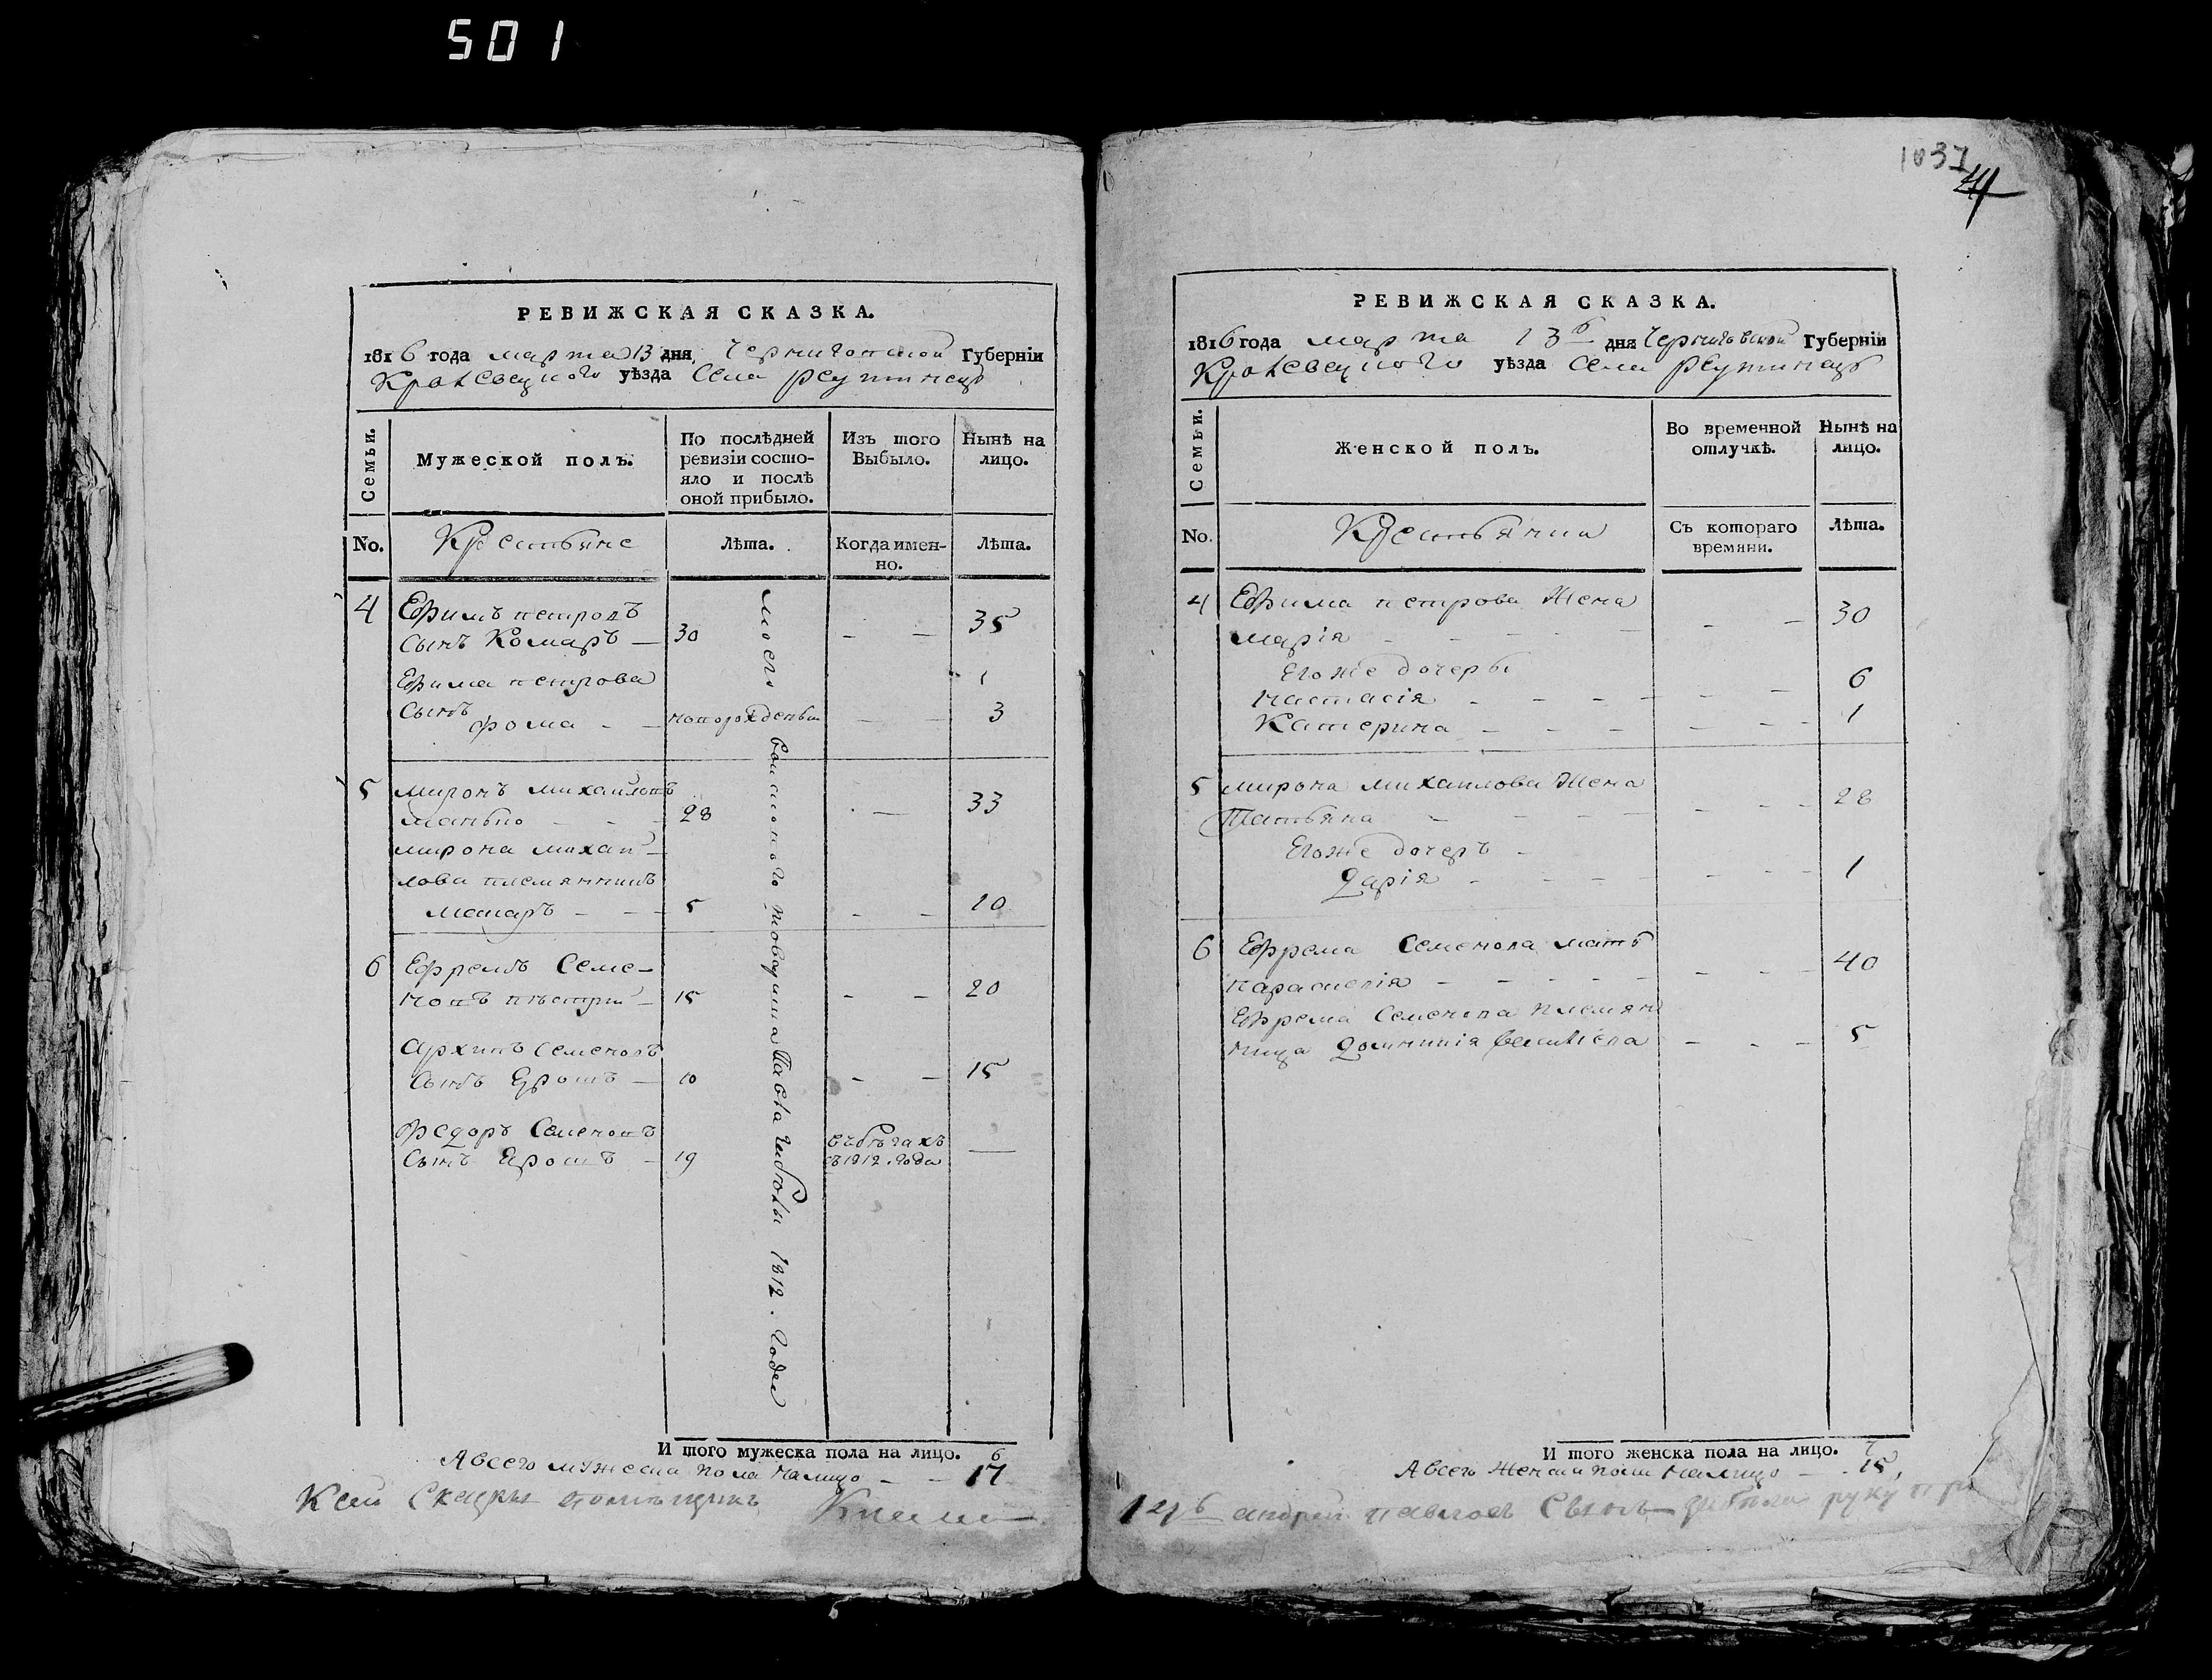 501
РЕВИЖСКАЯ СКАЗКА.
1816 года марта 13 дня Черниговской Губерніи
Кролевецкого уѣзда Села Реутинецъ
Семьи.
Мужеской полъ.
По послѣдней ревизіи состояло и послѣ оной прибыло.
Изъ того Выбыло.
Нынѣ на лицо.
No.
Крестьяне
Лѣта.
Когда именно.
Лѣта.
4 Ефимъ петровъ
сынъ Комаръ — 30 — — 35
Ефима петрова
сынъ
фома — — новорожденъ — — 3
5 миронъ михаиловъ
28 — 33
мирона михаи
лова племянникъ
макаръ — — 5 — — 10
6 Ефремъ Семе-
новъ — 15 — — 20
Архипъ семеновъ
сынъ Ярошъ — 10 — — 15
Федоръ Семеновъ
сынъ Ярошъ — 19 въ бѣгахъ съ 1812. года —
моего товарища Павла 1812. года
И того мужеска пола на лицо. 6
А всего мужеска пола налицо — — 17
К сей Скаски помѣщикъ
1037
РЕВИЖСКАЯ СКАЗКА.
1816 года марта 13 дня Черниговской Губерніи
Кролевецкого уѣзда Села Реутинецъ
Семьи.
Женской полъ.
Во временной отлучкѣ.
Нынѣ на лицо.
No.
Съ котораго времяни.
Лѣта.
4 Ефима петрова Жена
марія — — — 30
Егоже дочеры
настасія — — — 6
Катерина — — — 1
5 мирона михаилова Жена
Татьяна — — — 28
Егоже дочеръ —
Дарія — — — 1
6 Ефрема Семенова мать
параскевія — — — 40
Ефрема Семенова племян
ница — — — 5
И того женска пола на лицо. 7
А всего Женска пола налицо — 15
андрей павловъ Сынъ руку при